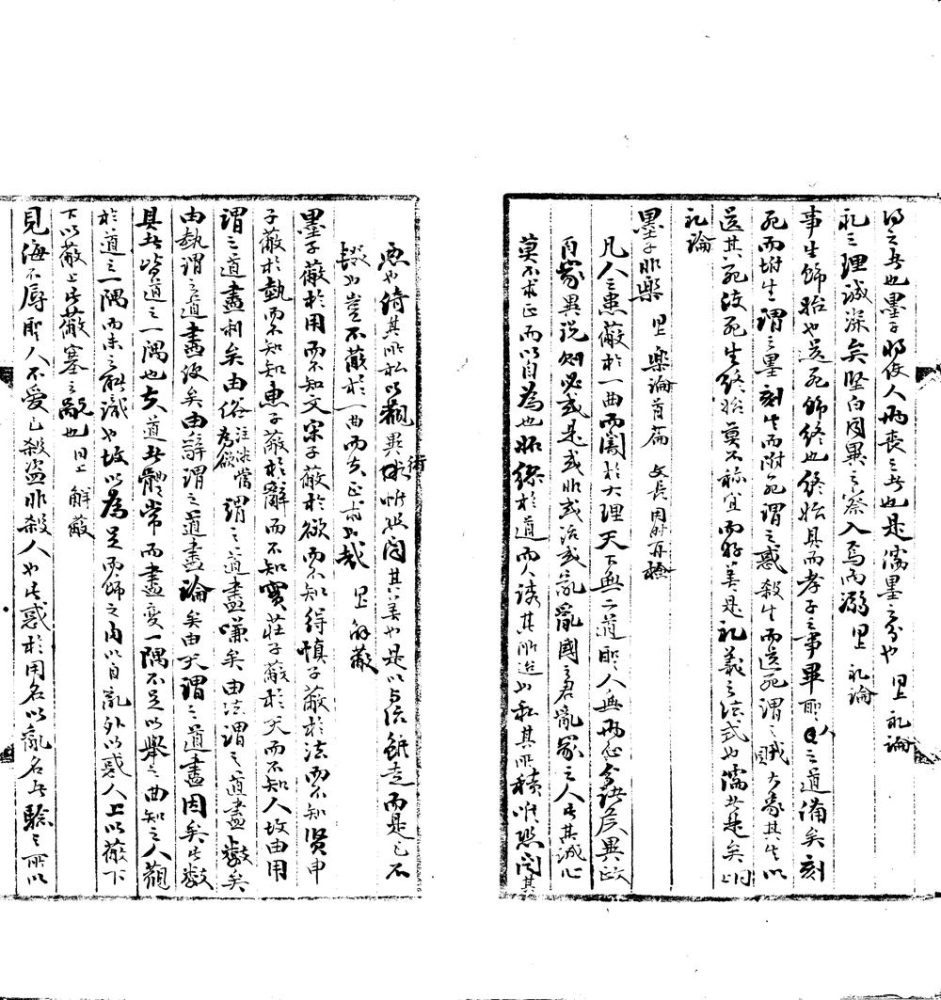 得之者也墨子将使人兩喪之者也是儒墨之分也 同上 礼論
礼之理誠深矣堅白同異之察入焉而溺 同上 礼論
事生飾始也送死飾終也終始具而孝子之事畢聖人之道備矣刻
死而附生謂之墨刻生而附死謂之惑殺生而送死謂之賊大象其生以
送其死使死生終始莫不称宜而好善是礼義之法式也儒者是矣 同上
礼論
墨子非樂 同上 樂論首篇 文長用時再檢
凡人之患蔽於一曲而闇於大理天下無二道聖人無兩心今諸侯異政
百家異説則必或是或非或治或亂亂國之君亂家之人此其誠心
莫不求正而以自為也妬繆於道而人誘其所迨也私其所積唯恐聞其
惡也倚其所私以觀異術唯恐聞其美也是以与治雖走而是己不
輟也豈不蔽於一曲而失正求也哉 同上 解蔽
墨子蔽於用而不知文宋子蔽於欲而不知得慎子蔽於法而不知賢申
子蔽於埶而不知知惠子蔽於辭而不知實莊子蔽於天而不知人故由用
謂之道盡利矣由俗注俗當為欲謂之道盡嗛矣由法謂之道盡數矣
由埶謂之道盡便矣由辭謂之道盡論矣由天謂之道盡因矣此數
具者皆道之一隅也夫道者體常而盡變一隅不足以舉之曲知之人觀
於道之一隅而未之能識也故以為足而飾之内以自亂外以惑人上以蔽下
下以蔽上此蔽塞之禍也 同上 解蔽
見侮不辱聖人不愛己殺盜非殺人也此惑於用名以亂名者驗之所以